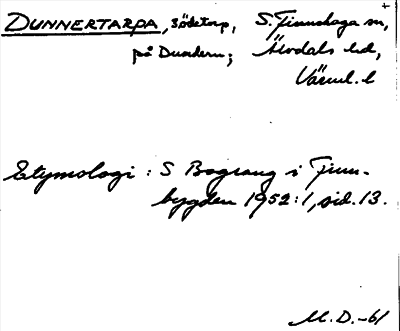 DUNNERTARPA, sädetorp, S. Finnskoga sn,
på Dundern; Älvdals hd,
Värml. l
Etymologi: S Bograng i Finn-
bygden 1952:1, sid. 13.
M.D.-61